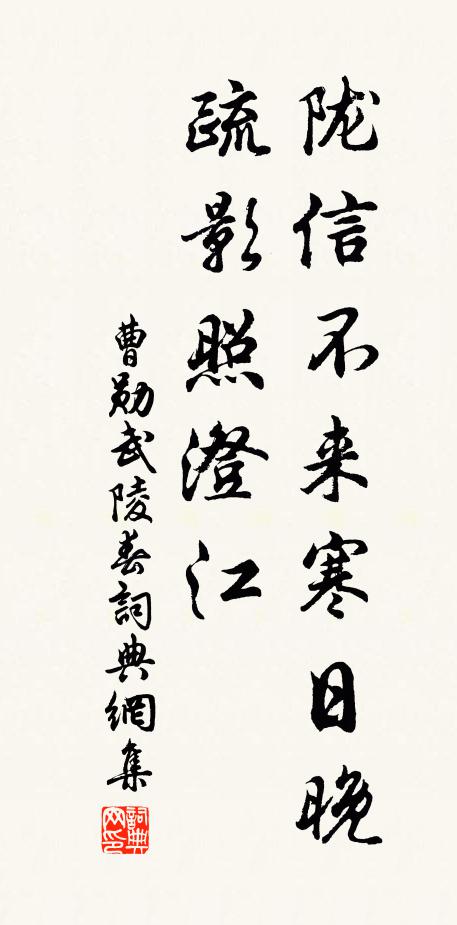 陇信不来寒日晚
疏影照澄江
曹勋武陵春詞典網集
詞典网印